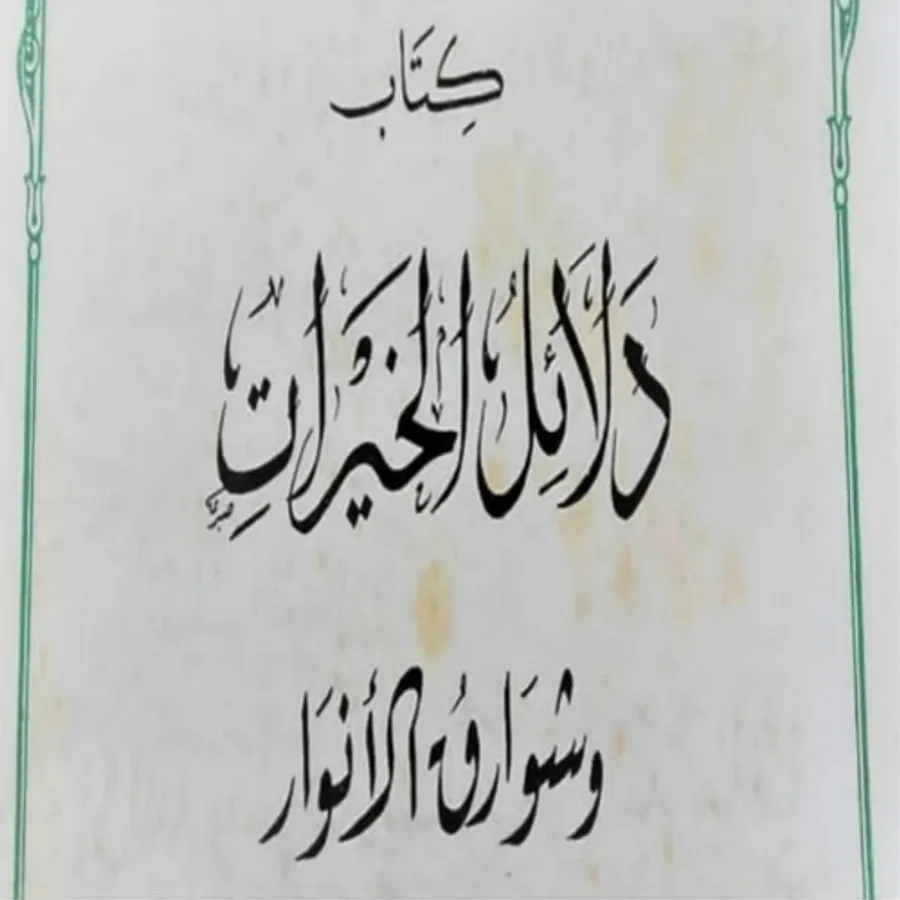 كِتَاب
دَلَائِلُ الخَيْرَاتِ
وشَوَارقُ الأَنوَار